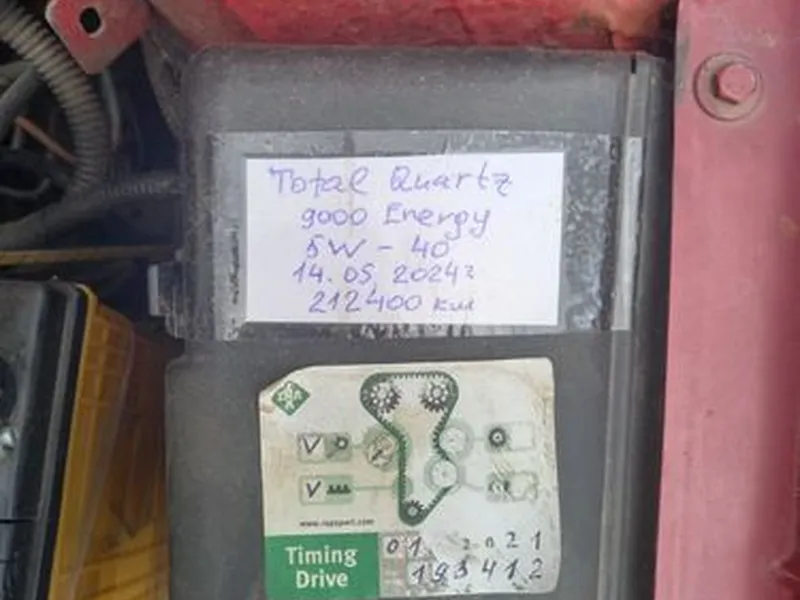 Total Quartz
9000 Energy
5W - 40
14.05.2024г
212400 км
INA
V
V
Timing
Drive
01 2021
193412